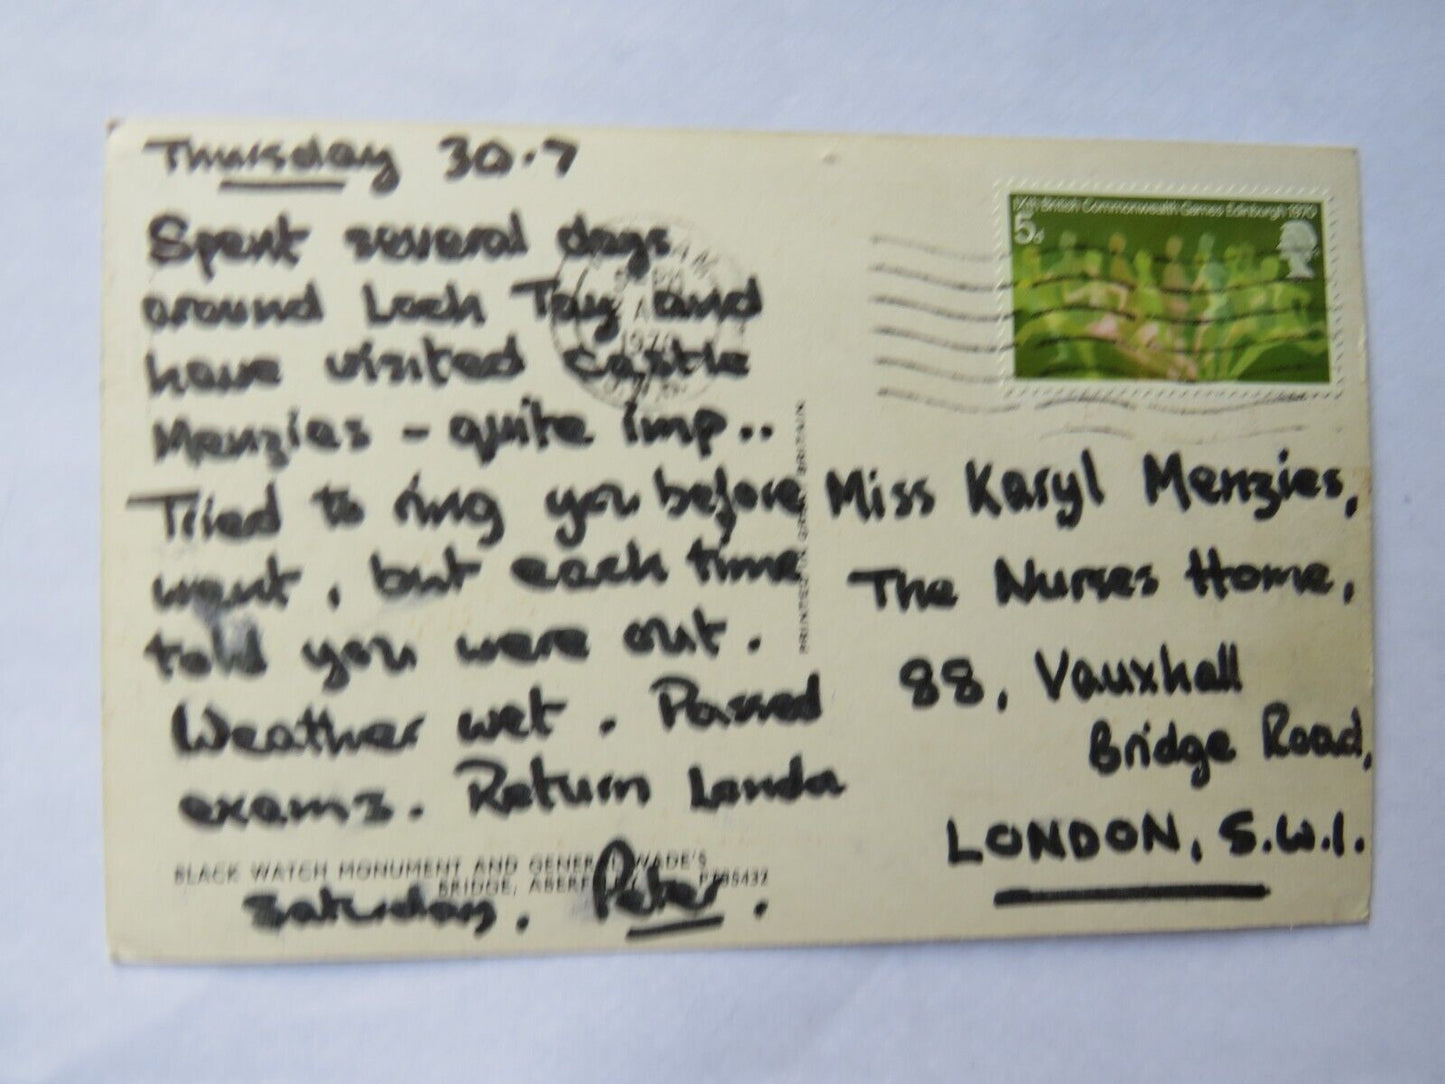 Thursday 30.7
Spent several days
around Loch Tay and
have visited Castle
Menzies - quite imp..
Tried to ring you before
went, but each time
told you were out.
Weather wet. Passed
exams. Return London
Saturday. Peter.
BLACK WATCH MONUMENT AND GENERAL WADE'S
BRIDGE,
PRINTED IN GREAT BRITAIN
1970
IXth British Commonwealth Games Edinburgh 1970
5d
Miss Karyl Menzies,
The Nurses Home,
88, Vauxhall
Bridge Road,
LONDON, S.W.1.